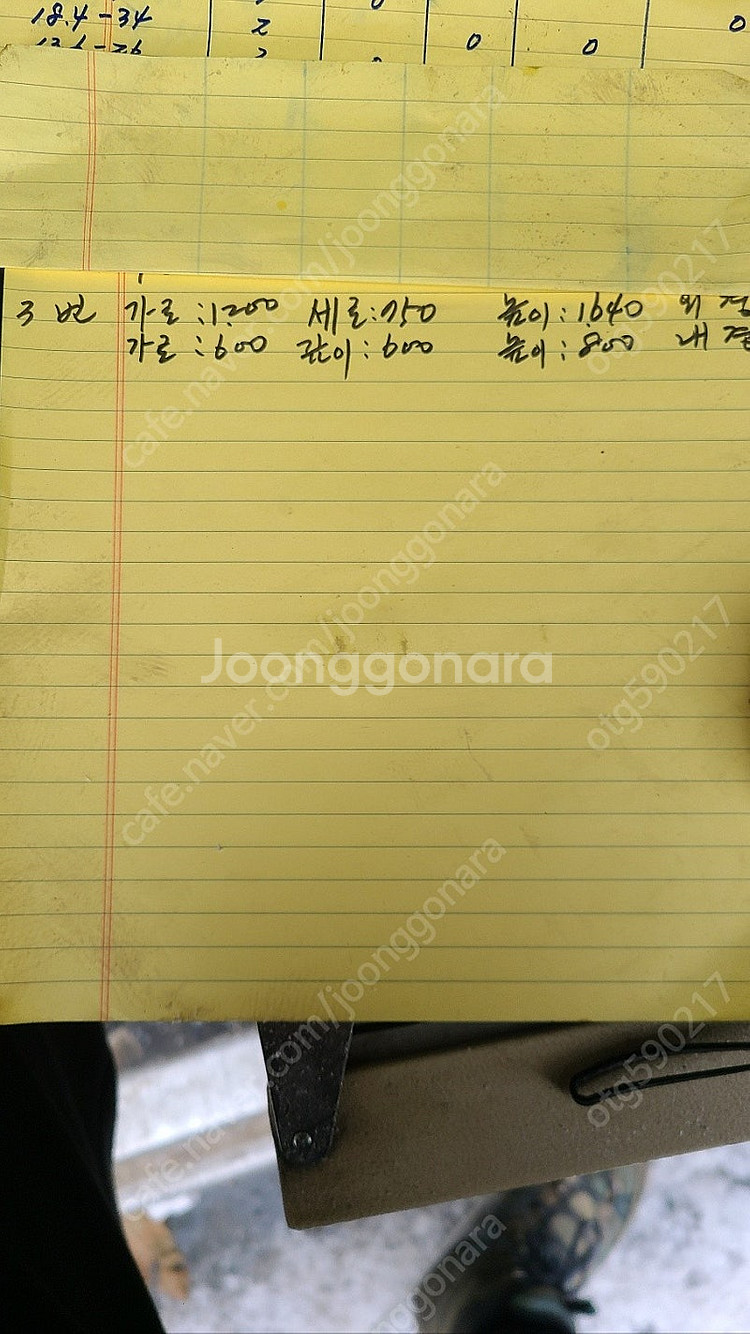 18.4-34 2 0
0 0
3번 가로:1,200 세로:750 높이:1,640 외
가로:600 깊이:600 높이:800 내
Joonggonara
cafe.naver.com/joonggonara
otg590217